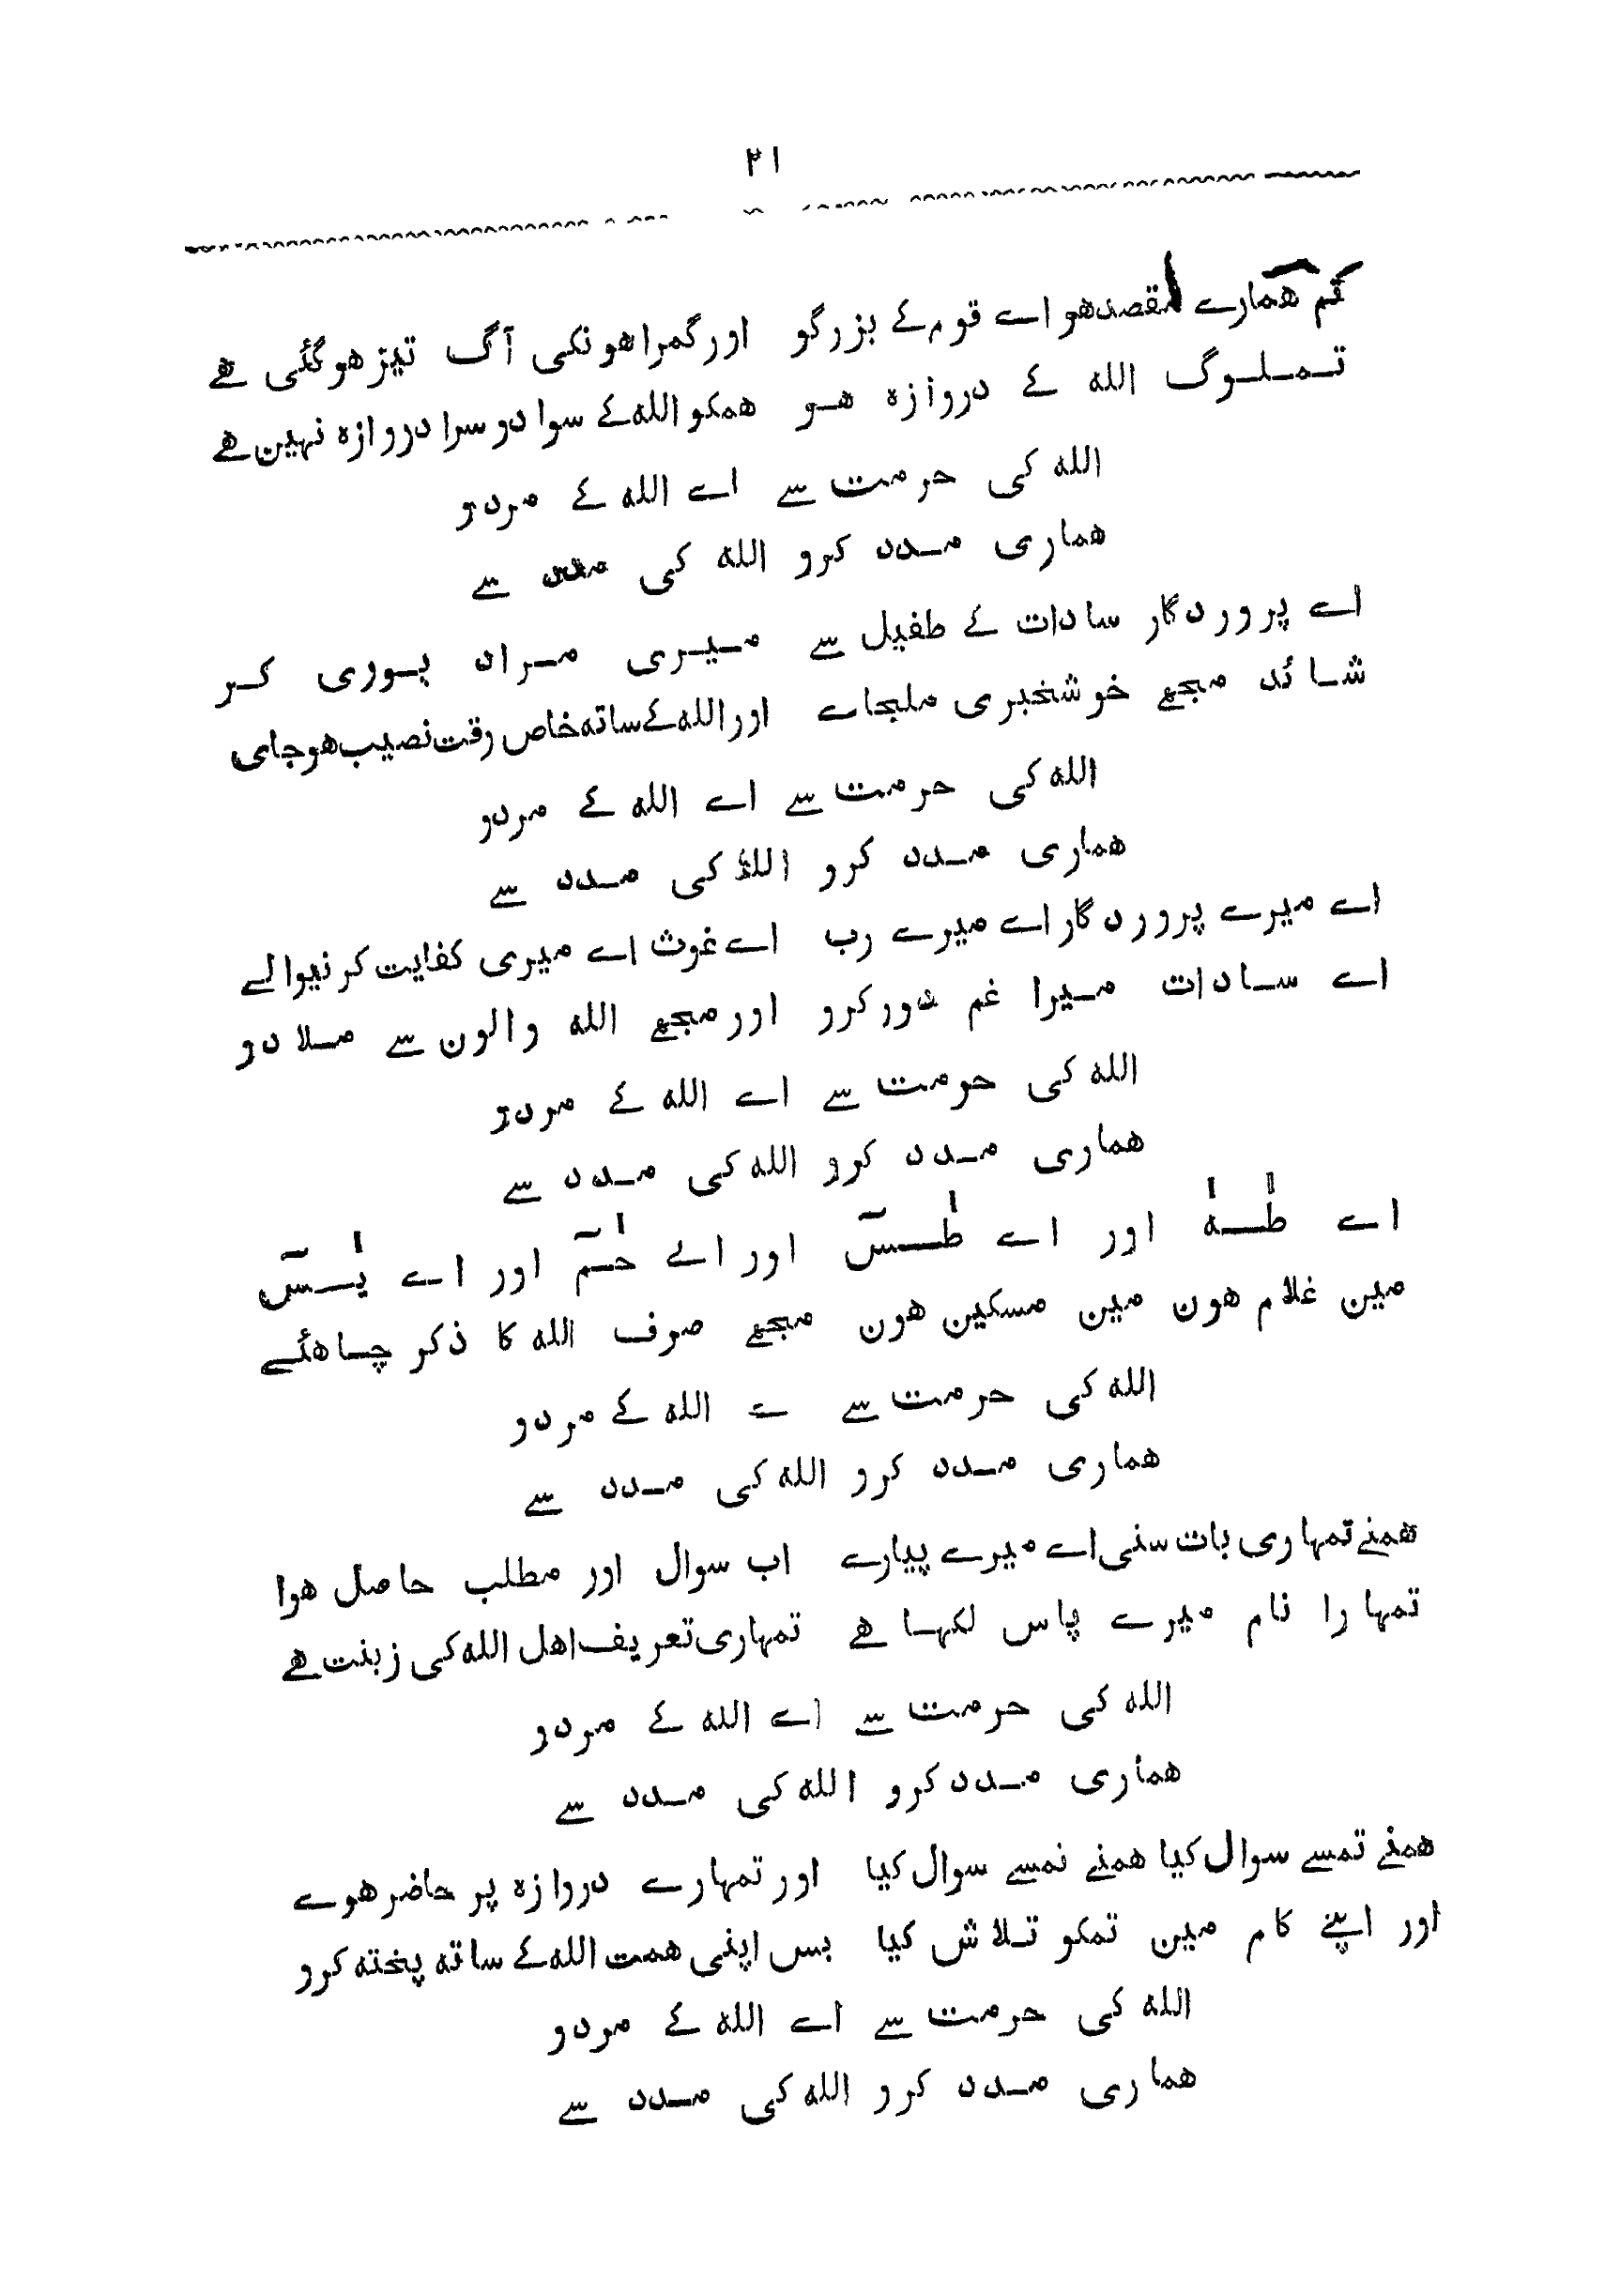 ٢١
تم همارے مقصدهو اے قوم کے بزرگو اور گمراهونکی آگ تیز هوگئی هے
تملوگ الله کے دروازه هو همکو الله کے سوا دوسرا دروازه نهین هے
الله کی حرمت سے اے الله کے مردو
هماری مدد کرو الله کی مدد سے
اے پروردگار سادات کے طفیل سے میری مراد پوری کر
شائد مجهے خوشخبری ملجاے اور الله کے ساته خاص وقت نصیب هوجای
الله کی حرمت سے اے الله کے مردو
هماری مدد کرو الله کی مدد سے
اے میرے پروردگار اے میرے رب اے غوث اے میری کفایت کرنیوالے
اے سادات میرا غم دور کرو اور مجهے الله والون سے ملا دو
الله کی حرمت سے اے الله کے مردو
هماری مدد کرو الله کی مدد سے
اے طٰهٰ اور اے طٰسٓ اور اے حٰمٓ اور اے یٰسٓ
مین غلام هون مین مسکین هون مجهے صرف الله کا ذکر چاهئے
الله کی حرمت سے ے الله کے مردو
هماری مدد کرو الله کی مدد سے
همنے تمهاری بات سنی اے میرے پیارے اب سوال اور مطلب حاصل هوا
تمهارا نام میرے پاس لکها هے تمهاری تعریف اهل الله کی زینت هے
الله کی حرمت سے اے الله کے مردو
هماری مدد کرو الله کی مدد سے
همنے تمسے سوال کیا همنے تمسے سوال کیا اور تمهارے دروازه پر حاضر هوے
اور اپنے کام مین تمکو تلاش کیا بس اپنی همت الله کے ساته پخته کرو
الله کی حرمت سے اے الله کے مردو
هماری مدد کرو الله کی مدد سے